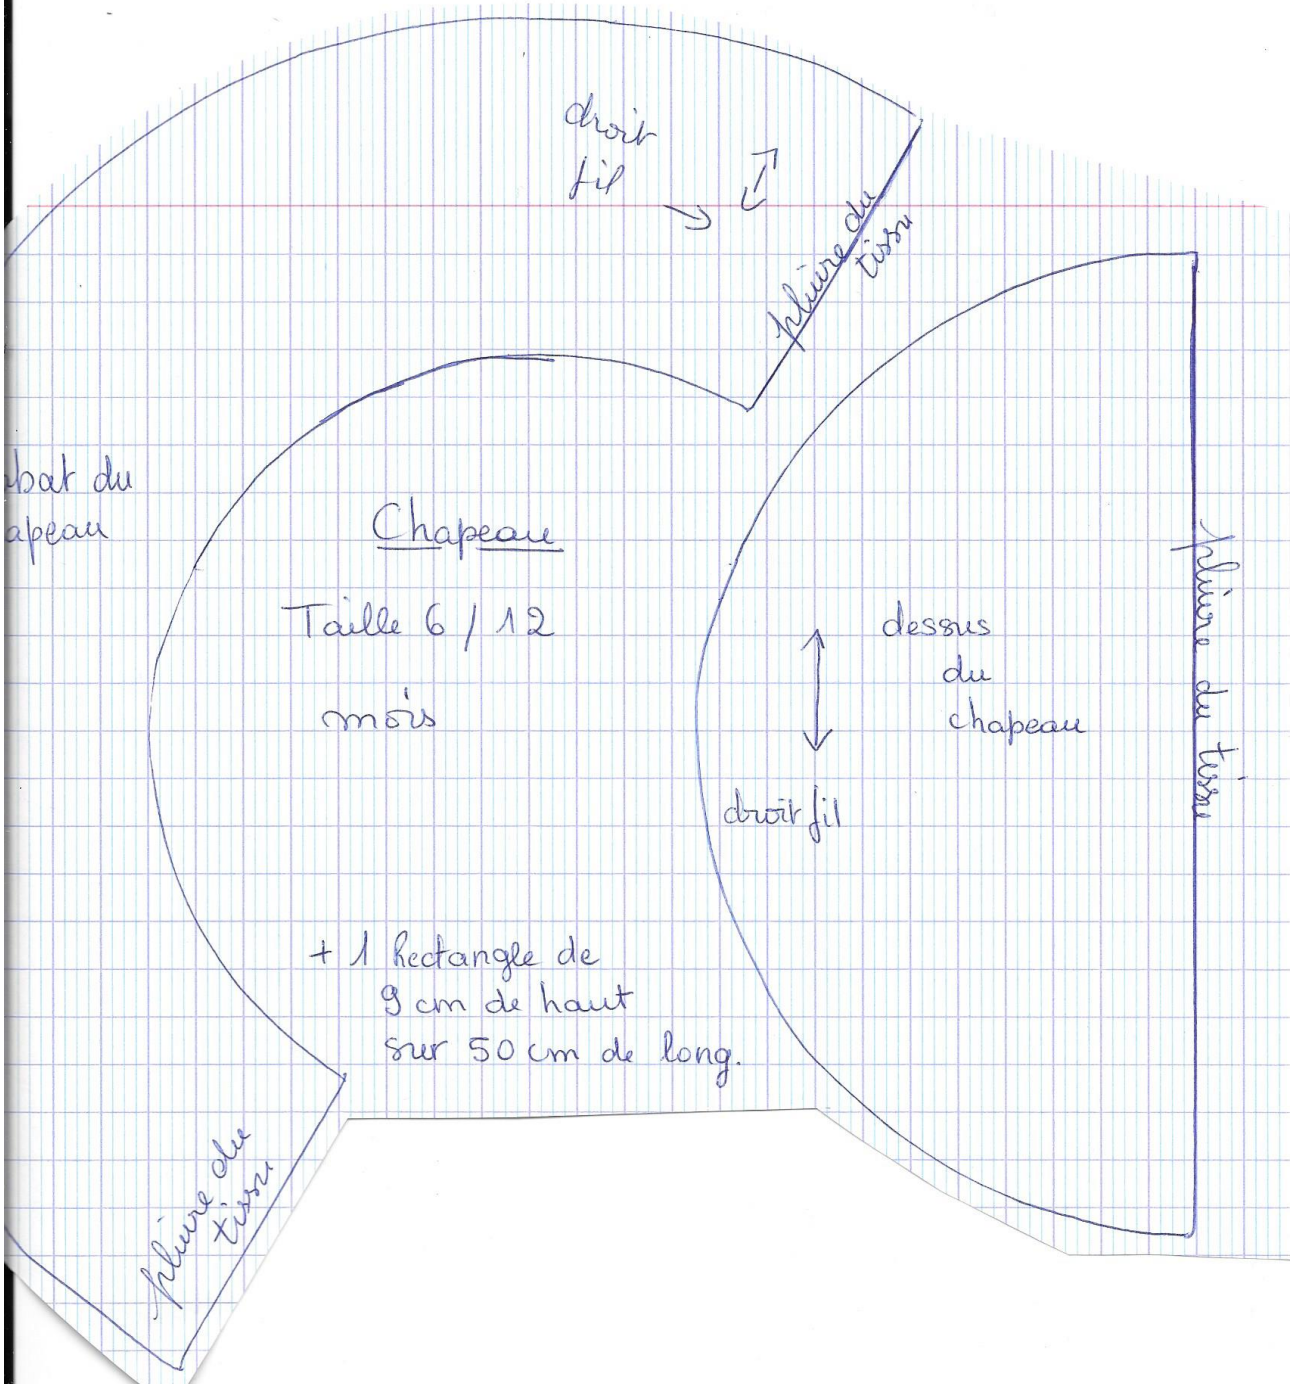 droit
fil
pliure du
tissu
bat du
apeau
Chapeau
Taille 6 / 12
mois
dessus
du
chapeau
droit fil
pliure du tissu
+ 1 Rectangle de
9 cm de haut
sur 50 cm de long.
pliure du
tissu